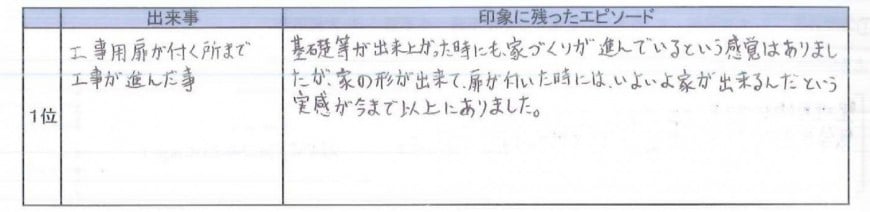 出来事
印象に残ったエピソード
1位
工事用扉が付く所まで
工事が進んだ事
基礎等が出来上がった時にも、家づくりが進んでいるという感覚はありまし
たが、家の形が出来て、扉が付いた時には、いよいよ家が出来るんだという
実感が今まで以上にありました。